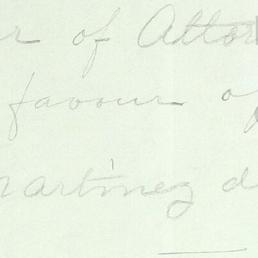 r of Attor
favour of
Martinez d